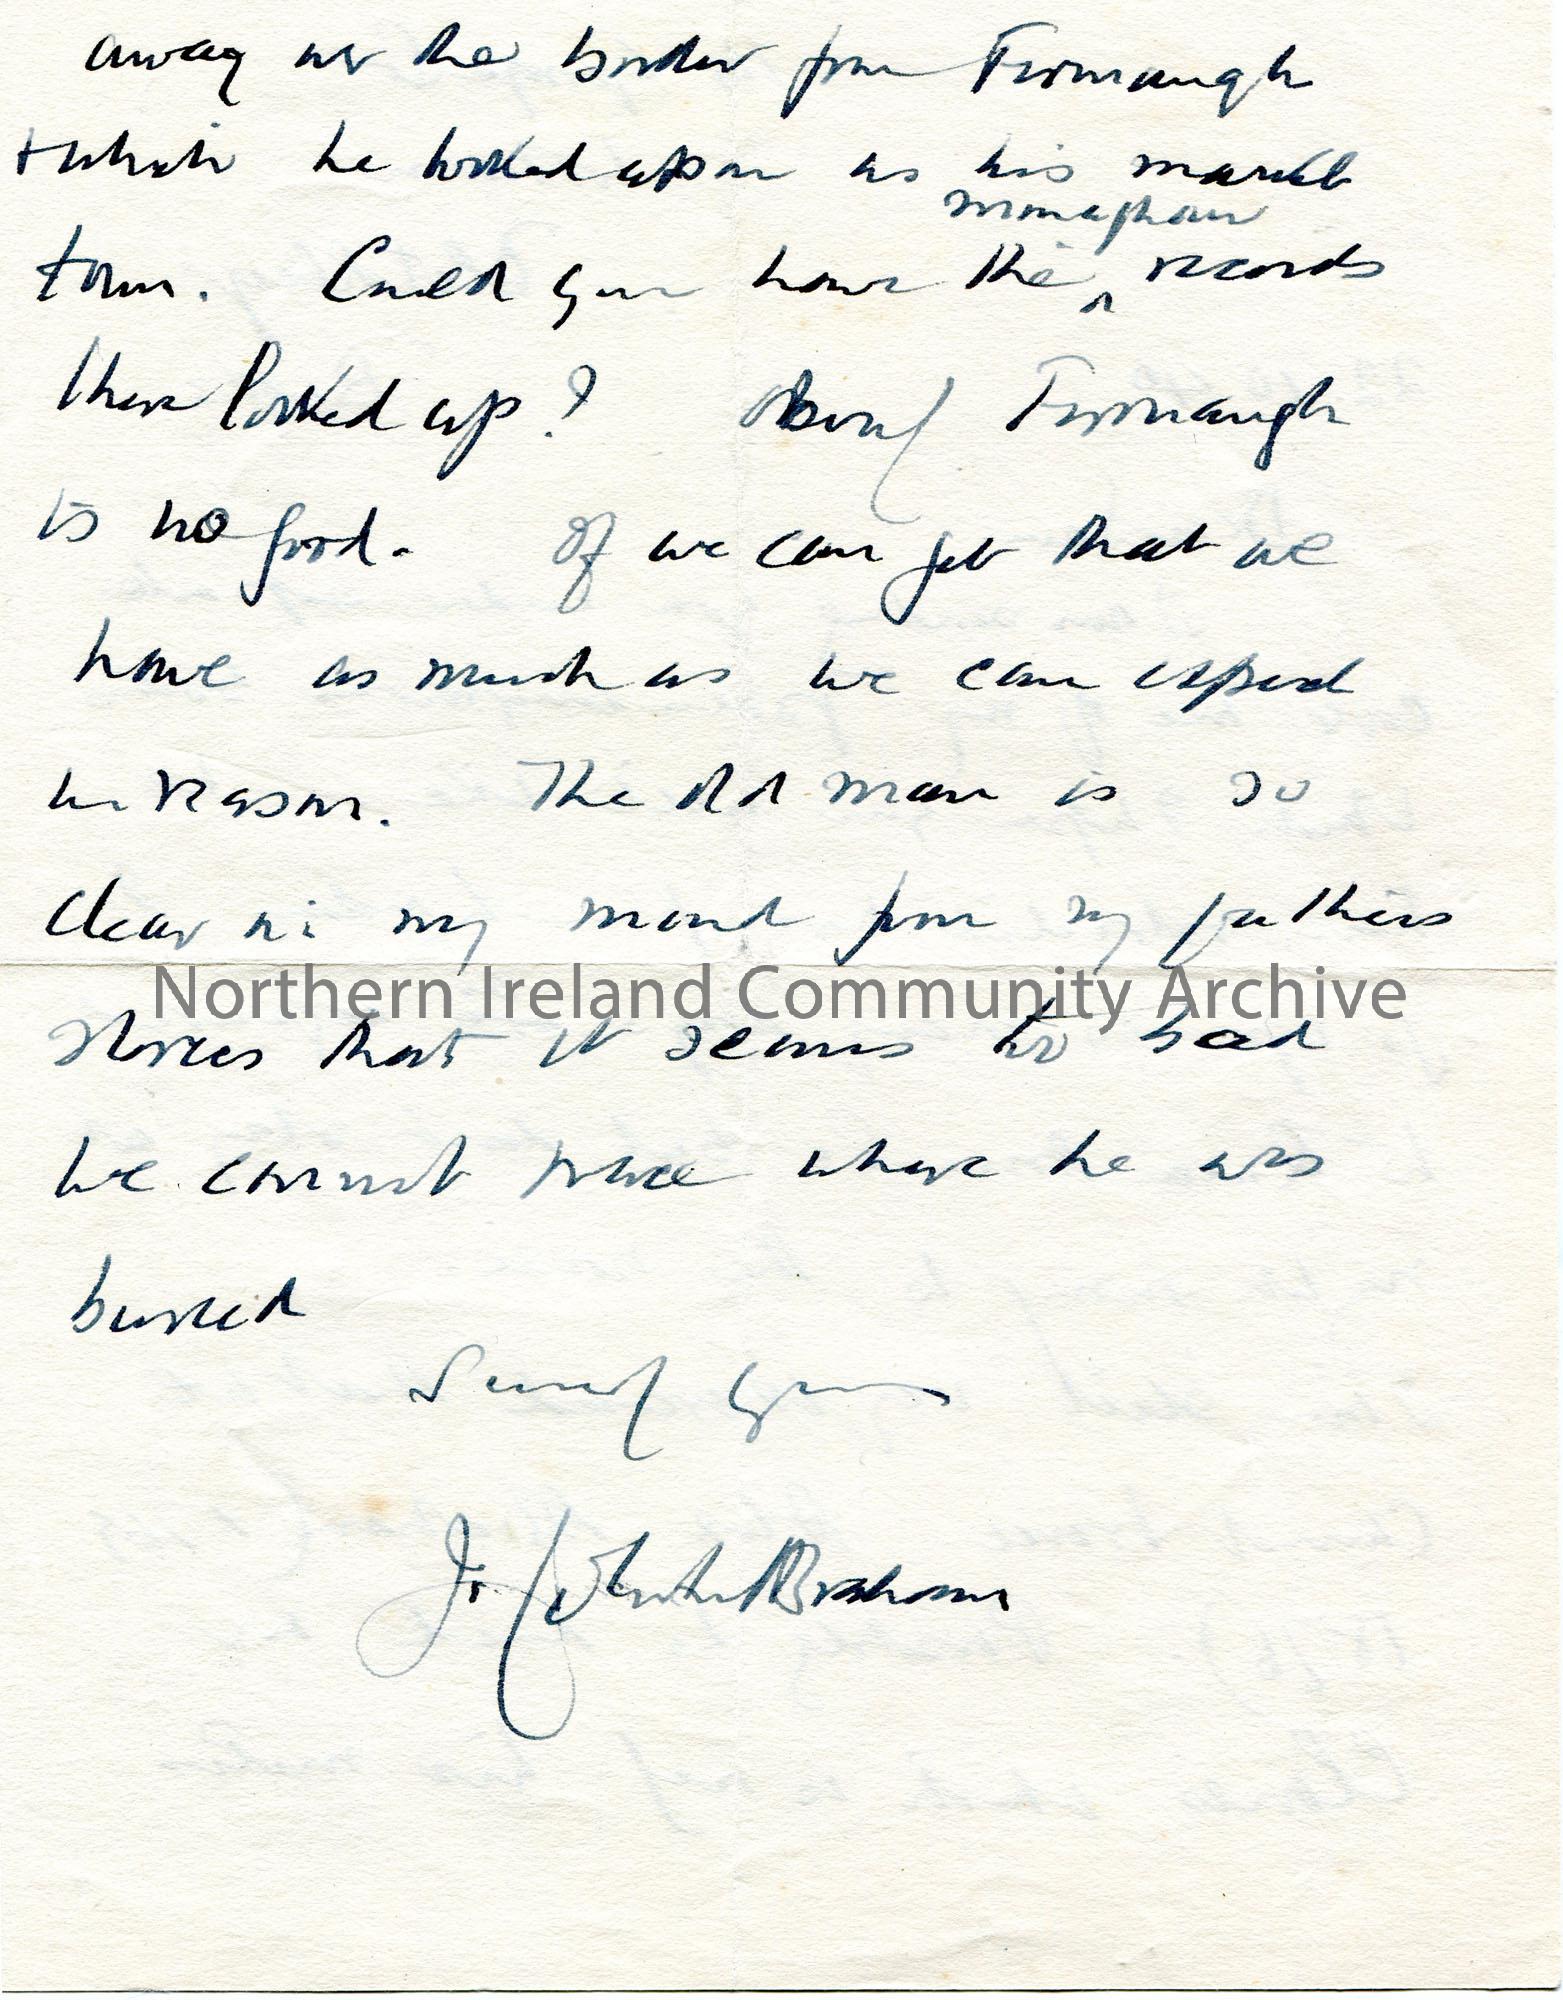 away over the border from Fermanagh
+ which he looked upon as his market
Monaghan
town. Could you have the ^ records
there looked up? Obviously Fermanagh
is no good. If we can get that we
have as much as we can expect
in reason. The old man is so
clear in my mind from my fathers
Northern Ireland Community Archive
stories that it seems too bad
we cannot trace where he was
buried
Sincerely yours
Johnston Abraham